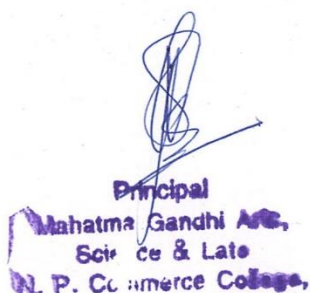 Principal
Mahatma Gandhi Arts,
Science & Late
N. P. Commerce College,